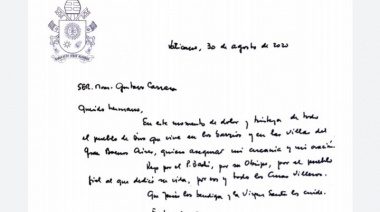 Vaticano, 30 de agosto de 2020
SER. Mons. Gustavo Carrara
Querido hermano,
En este momento de dolor y tristeza de todo
el pueblo de Dios que vive en los barrios y en las villas del
Gran Buenos Aires, quiero asegurar mi cercanía y mi oración.
Rezo por el P. Bachi, por su Obispo, por el pueblo
fiel al que dedicó su vida, por vos y todos los Curas Villeros.
Que Jesús los bendiga y la Virgen Santa los cuide.